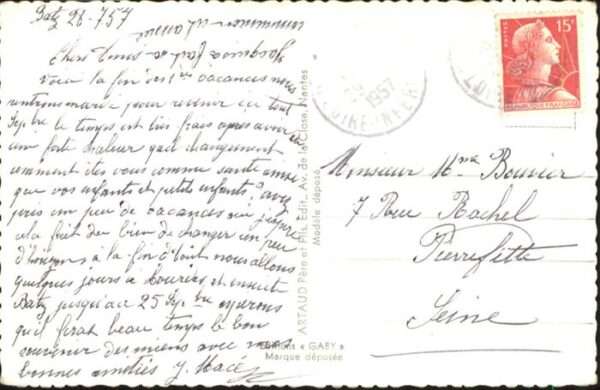 Batz 28-7 57
Chers Amis
Voici la fin des vacances nous
rentrerons pour revenir en
Septbre le temps est très frais après avoir eu
une forte chaleur quel changement
comment allez vous comme santé ainsi
que vos enfants et petits enfants avez
pris un peu de vacances
cela fait du bien de changer un peu
d'horizons à la fin d'Août nous allons
quelques jours à et ensuite
Batz jusqu'au 25 Septbre espérons
qu'il ferat beau temps le bon
souvenir des miens avec mes
bonnes amitiés J. Macé
ARTAUD Père et Fils, Edit., Av. de la Close, Nantes
Modèle déposé
Editions « GABY »
Marque déposée
1957
LOIRE-INFRE
15F
POSTES
REPUBLIQUE FRANÇAISE
Monsieur Mme Bouvier
7 Rue Rachel
Pierrefitte
Seine